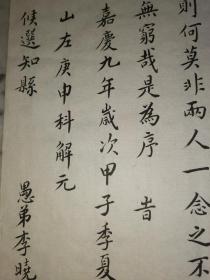 則何莫非兩人一念之不
無窮哉是為序 旹
嘉慶九年歲次甲子季夏
山左庚申科解元
候選知縣 愚弟李曉